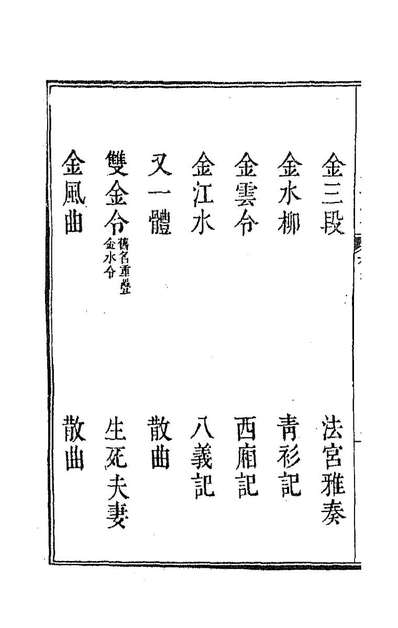 金三段 法宮雅奏
金水柳 青衫記
金雲令 西廂記
金江水 八義記
又一體 散曲
雙金令 舊名重疊金水令 生死夫妻
金風曲 散曲